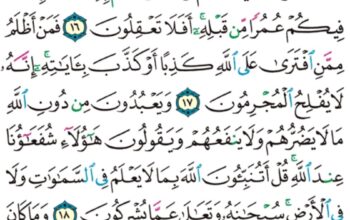 فِيكُمْ عُمُرًا مِّن قَبْلِهِۦٓ ۚ أَفَلَا تَعْقِلُونَ ١٦ فَمَنْ أَظْلَمُ
مِمَّنِ ٱفْتَرَىٰ عَلَى ٱللَّهِ كَذِبًا أَوْ كَذَّبَ بِـَٔايَـٰتِهِۦٓ ۚ إِنَّهُۥ
لَا يُفْلِحُ ٱلْمُجْرِمُونَ ١٧ وَيَعْبُدُونَ مِن دُونِ ٱللَّهِ
مَا لَا يَضُرُّهُمْ وَلَا يَنفَعُهُمْ وَيَقُولُونَ هَـٰٓؤُلَآءِ شُفَعَـٰٓؤُنَا
عِندَ ٱللَّهِ ۚ قُلْ أَتُنَبِّـُٔونَ ٱللَّهَ بِمَا لَا يَعْلَمُ فِى ٱلسَّمَـٰوَٰتِ وَلَا
فِى ٱلْأَرْضِ ۚ سُبْحَـٰنَهُۥ وَتَعَـٰلَىٰ عَمَّا يُشْرِكُونَ ١٨ وَمَا كَانَ